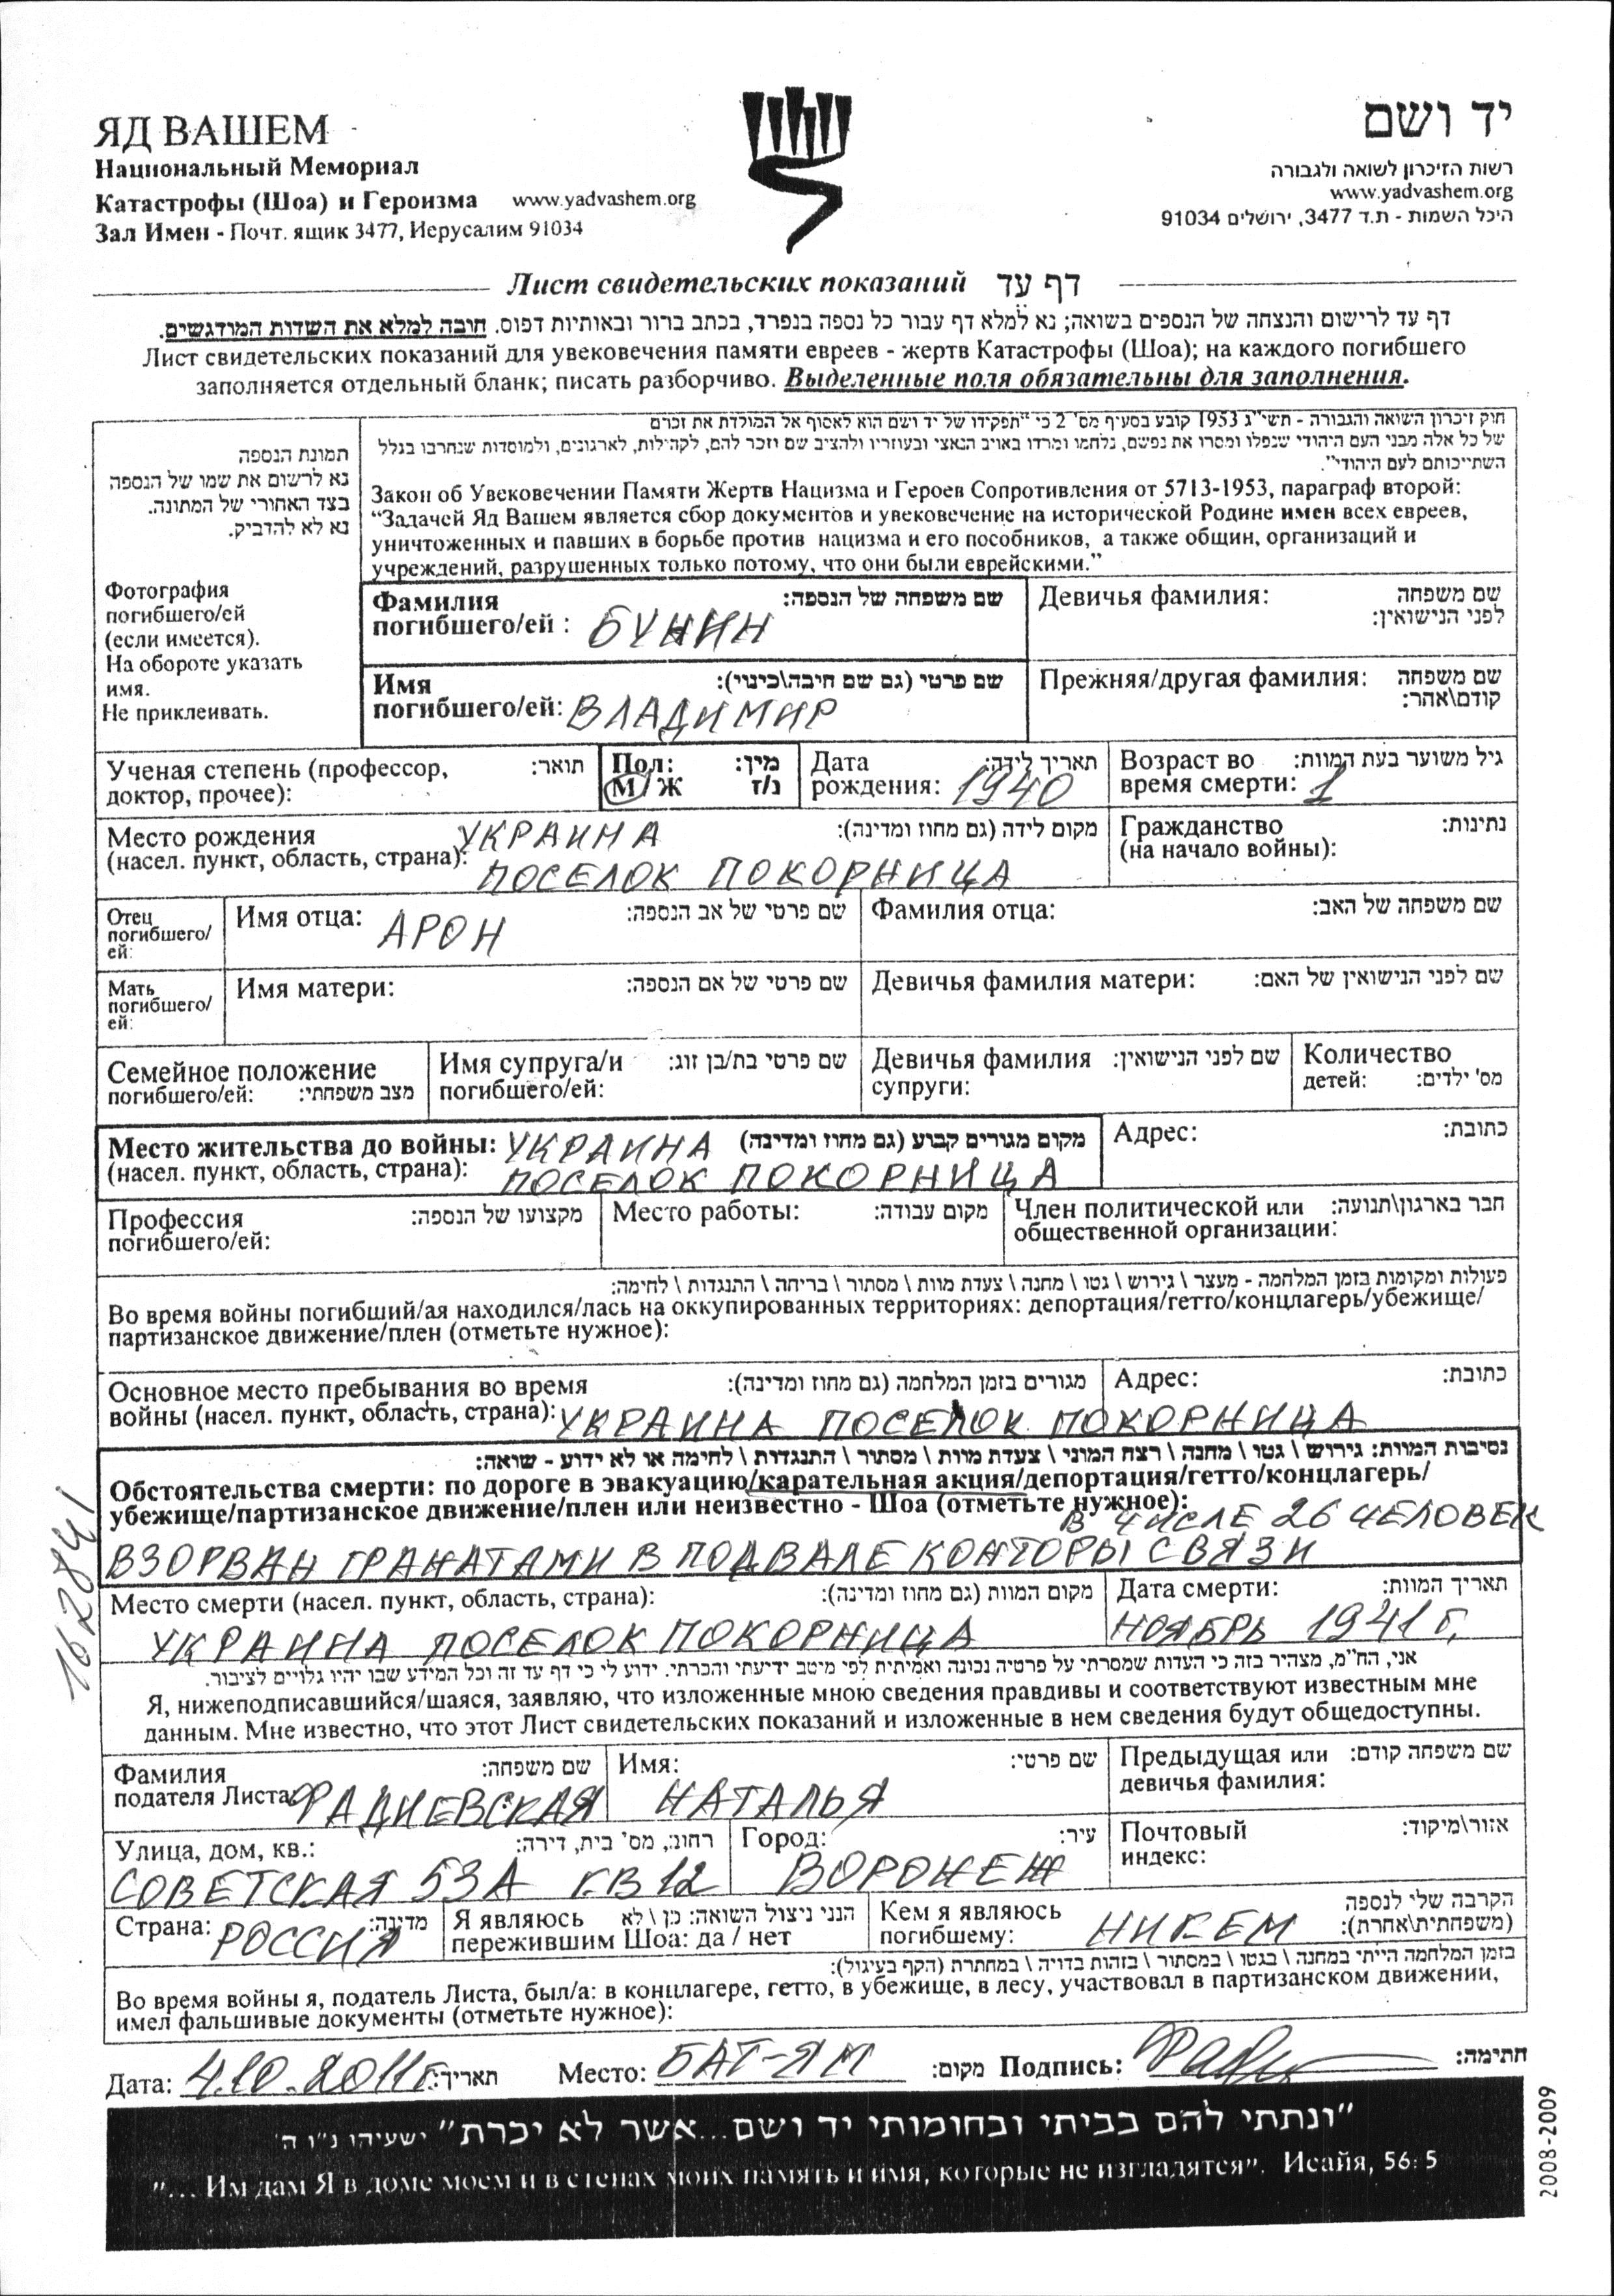 ЯД ВАШЕМ
Национальный Мемориал
Катастрофы (Шоа) и Героизма www.yadvashem.org
Зал Имен - Почт. ящик 3477, Иерусалим 91034
יד ושם
רשות הזיכרון לשואה ולגבורה
www.yadvashem.org
היכל השמות - ת.ד 3477, ירושלים 91034
Лист свидетельских показаний דף עד
דף עד לרישום והנצחה של הנספים בשואה; נא למלא דף עבור כל נספה בנפרד, בכתב ברור ובאותיות דפוס. חובה למלא את השדות המודגשים.
Лист свидетельских показаний для увековечения памяти евреев - жертв Катастрофы (Шоа); на каждого погибшего
заполняется отдельный бланк; писать разборчиво. Выделенные поля обязательны для заполнения.
תמונת הנספה
נא לרשום את שמו של הנספה
בצד האחורי של המתונה.
נא לא להדביק.
Фотография
погибшего/ей
(если имеется).
На обороте указать
имя.
Не приклеивать.
חוק זיכרון השואה והגבורה - תשי"ג 1953 קובע בסעיף מס' 2 כי "תפקידו של יד ושם הוא לאסוף אל המולדת את זכרם
של כל אלה מבני העם היהודי שנפלו ומסרו את נפשם, נלחמו ומרדו באויב הנאצי ובעוזריו ולהציב שם וזכר להם, לקהילות, לארגונים, ולמוסדות שנחרבו בגלל
השתייכותם לעם היהודי".
Закон об Увековечении Памяти Жертв Нацизма и Героев Сопротивления от 5713-1953, параграф второй:
"Задачей Яд Вашем является сбор документов и увековечение на исторической Родине имен всех евреев,
уничтоженных и павших в борьбе против нацизма и его пособников, а также общин, организаций и
учреждений, разрушенных только потому, что они были еврейскими."
Фамилия שם משפחה של הנספה:
погибшего/ей : БУНИН
Девичья фамилия: שם משפחה
לפני הנישואין:
Имя שם פרטי (גם שם חיבה\כינוי):
погибшего/ей: ВЛАДИМИР
Прежняя/другая фамилия: שם משפחה
קודם\אחר:
Ученая степень (профессор, תואר:
доктор, прочее):
Пол: מין:
М/Ж נ/ז
Дата תאריך לידה:
рождения: 1940
Возраст во גיל משוער בעת המוות:
время смерти: 1
Место рождения УКРАИНА מקום לידה (גם מחוז ומדינה):
(насел. пункт, область, страна): ПОСЕЛОК ПОКОРНИЦА
Гражданство נתינות:
(на начало войны):
Отец
погибшего/
ей:
Имя отца: АРОН שם פרטי של אב הנספה:
Фамилия отца: שם משפחה של האב:
Мать
погибшего/
ей:
Имя матери: שם פרטי של אם הנספה:
Девичья фамилия матери: שם לפני הנישואין של האם:
Семейное положение
погибшего/ей: מצב משפחתי:
Имя супруга/и שם פרטי בת/בן זוג:
погибшего/ей:
Девичья фамилия שם לפני הנישואין:
супруги:
Количество
детей: מס' ילדים:
Место жительства до войны: УКРАИНА מקום מגורים קבוע (גם מחוז ומדינה)
(насел. пункт, область, страна): ПОСЕЛОК ПОКОРНИЦА
Адрес: כתובת:
Профессия מקצועו של הנספה:
погибшего/ей:
Место работы: מקום עבודה:
Член политической или חבר בארגון\תנועה:
общественной организации:
פעולות ומקומות בזמן המלחמה - מעצר \ גירוש \ גטו \ מחנה \ צעדת מוות \ מסתור \ בריחה \ התנגדות \ לחימה:
Во время войны погибший/ая находился/лась на оккупированных территориях: депортация/гетто/концлагерь/убежище/
партизанское движение/плен (отметьте нужное):
Основное место пребывания во время מגורים בזמן המלחמה (גם מחוז ומדינה):
войны (насел. пункт, область, страна): УКРАИНА ПОСЕЛОК ПОКОРНИЦА
Адрес: כתובת:
נסיבות המוות: גירוש \ גטו \ מחנה \ רצח המוני \ צעדת מוות \ מסתור \ התנגדות \ לחימה או לא ידוע - שואה:
Обстоятельства смерти: по дороге в эвакуацию/карательная акция/депортация/гетто/концлагерь/
убежище/партизанское движение/плен или неизвестно - Шоа (отметьте нужное):
В ЧИСЛЕ 26 ЧЕЛОВЕК
ВЗОРВАН ГРАНАТАМИ В ПОДВАЛЕ КОНТОРЫ СВЯЗИ
Место смерти (насел. пункт, область, страна): מקום המוות (גם מחוז ומדינה):
УКРАИНА ПОСЕЛОК ПОКОРНИЦА
Дата смерти: תאריך המוות:
НОЯБРЬ 1941 г.
אני, הח"מ, מצהיר בזה כי העדות שמסרתי על פרטיה נכונה ואמיתית לפי מיטב ידיעתי והכרתי. ידוע לי כי דף עד זה וכל המידע שבו יהיו גלויים לציבור.
Я, нижеподписавшийся/шаяся, заявляю, что изложенные мною сведения правдивы и соответствуют известным мне
данным. Мне известно, что этот Лист свидетельских показаний и изложенные в нем сведения будут общедоступны.
Фамилия שם משפחה:
подателя Листа: ФАДИЕВСКАЯ
Имя: שם פרטי:
НАТАЛЬЯ
Предыдущая или שם משפחה קודם:
девичья фамилия:
Улица, дом, кв.: רחוב, מס' בית, דירה:
СОВЕТСКАЯ 53А КВ 12
Город: עיר:
ВОРОНЕЖ
Почтовый אזור\מיקוד:
индекс:
Страна: РОССИЯ מדינה:
Я являюсь הנני ניצול השואה: כן \ לא
пережившим Шоа: да / нет
Кем я являюсь הקרבה שלי לנספה
погибшему: НИКЕМ (משפחתית\אחרת):
בזמן המלחמה הייתי במחנה \ בגטו \ במסתור \ בזהות בדויה \ במחתרת (הקף בעיגול):
Во время войны я, податель Листа, был/а: в концлагере, гетто, в убежище, в лесу, участвовал в партизанском движении,
имел фальшивые документы (отметьте нужное):
Дата: 4.10.2011г. תאריך: Место: БАТ-ЯМ מקום: Подпись: חתימה:
"ונתתי להם בביתי ובחומותי יד ושם...אשר לא יכרת" ישעיהו נ"ו ה'
"... Им дам Я в доме моем и в стенах моих память и имя, которые не изгладятся". Исайя, 56: 5
2008-2009